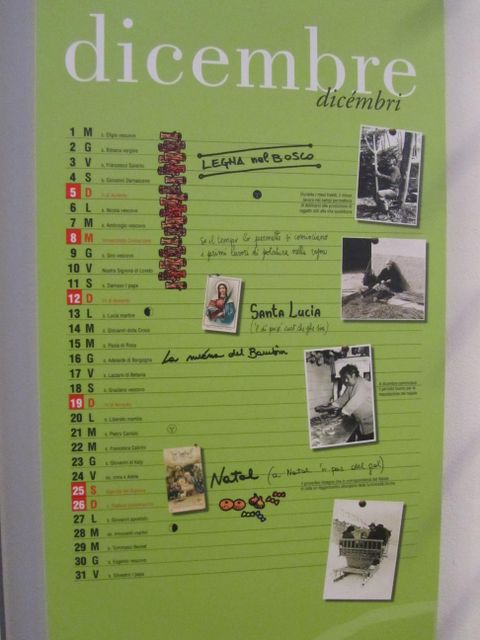 dicembre
dicémbri
1 M s. Eligio vescovo
2 G s. Bibiana vergine
LEGNA nel BOSCO
3 V s. Francesco Saverio
4 S s. Giovanni Damasceno
5 D II di Avvento
6 L s. Nicola vescovo
7 M s. Ambrogio vescovo
8 M Immacolata Concezione
Se il tempo lo permette si cominciano
9 G s. Siro vescovo
i primi lavori di potatura nella vigna
10 V Nostra Signora di Loreto
11 S s. Damaso I papa
12 D III di Avvento
13 L s. Lucia martire
SANTA LUCIA
14 M s. Giovanni della Croce
15 M s. Paola di Rosa
16 G s. Adelaide di Borgogna
La nuéna del Bambin
17 V s. Lazzaro di Betania
18 S s. Graziano vescovo
19 D IV di Avvento
20 L s. Liberato martire
21 M s. Pietro Canisio
22 M s. Francesca Cabrini
23 G s. Giovanni di Kety
24 V ss. Irma e Adele
NATAL (a Natal 'n pas del gal)
25 S Natività del Signore
26 D s. Stefano protomartire
27 L s. Giovanni apostolo
28 M ss. Innocenti martiri
29 M s. Tommaso Becket
30 G s. Eugenio vescovo
31 V s. Silvestro I papa